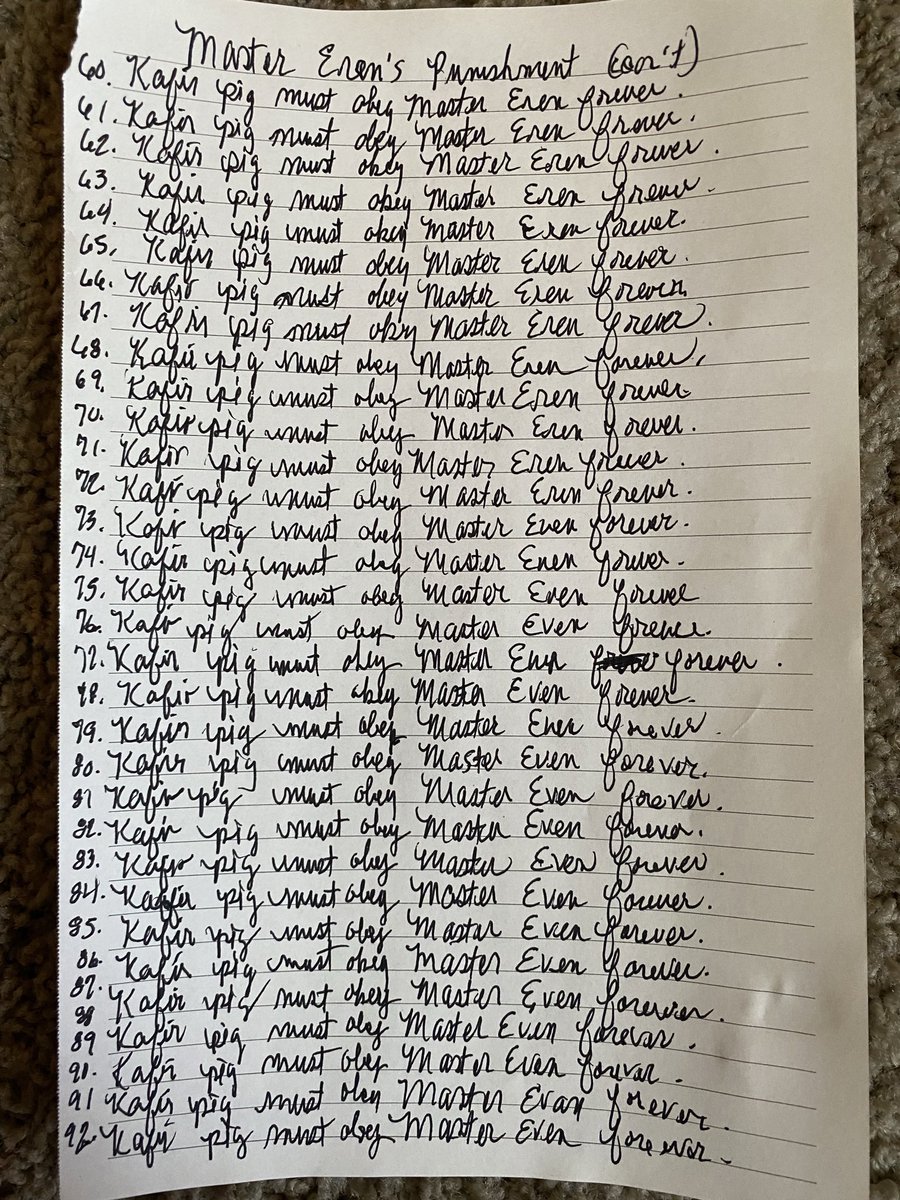 Master Eren's Punishment (con't)
60. Kafir pig must obey Master Eren forever.
61. Kafir pig must obey Master Eren frover.
62. Kafir pig must obey Master Eren forever.
63. Kafir pig must obey Master Eren forever.
64. Kafir pig must obey Master Eren forever.
65. Kafir pig must obey Master Eren forever.
66. Kafir pig must obey Master Eren forever.
67. Kafir pig must obey Master Eren forever.
68. Kafir pig must obey Master Eren forever.
69. Kafir pig must obey Master Eren forever.
70. Kafir pig must obey Master Eren forever.
71. Kafir pig must obey Master Eren forever.
72. Kafir pig must obey Master Eren forever.
73. Kafir pig must obey Master Even forever.
74. Kafir pig must obey Master Enen forever.
75. Kafir pig must obey Master Even forever
76. Kafir pig must obey Master Even forever.
77. Kafir pig must obey Master Even forever.
78. Kafir pig must obey Master Even forever.
79. Kafir pig must obey Master Even forever.
80. Kafir pig must obey Master Even forever.
81 Kafir pig must obey Master Even forever.
82. Kafir pig must obey Master Even forever.
83. Kafir pig must obey Master Even forever
84. Kafir pig must obey Master Even forever.
85. Kafir pig must obey Master Even forever.
86. Kafir pig must obey Master Even forever.
87.
88 Kafir pig must obey Master Even forever.
89 Kafir pig must obey Master Even forever.
90. Kafir pig must obey Master Evan forever.
91 Kafir pig must obey Master Evan forever.
92. Kafir pig must obey Master Even forever.